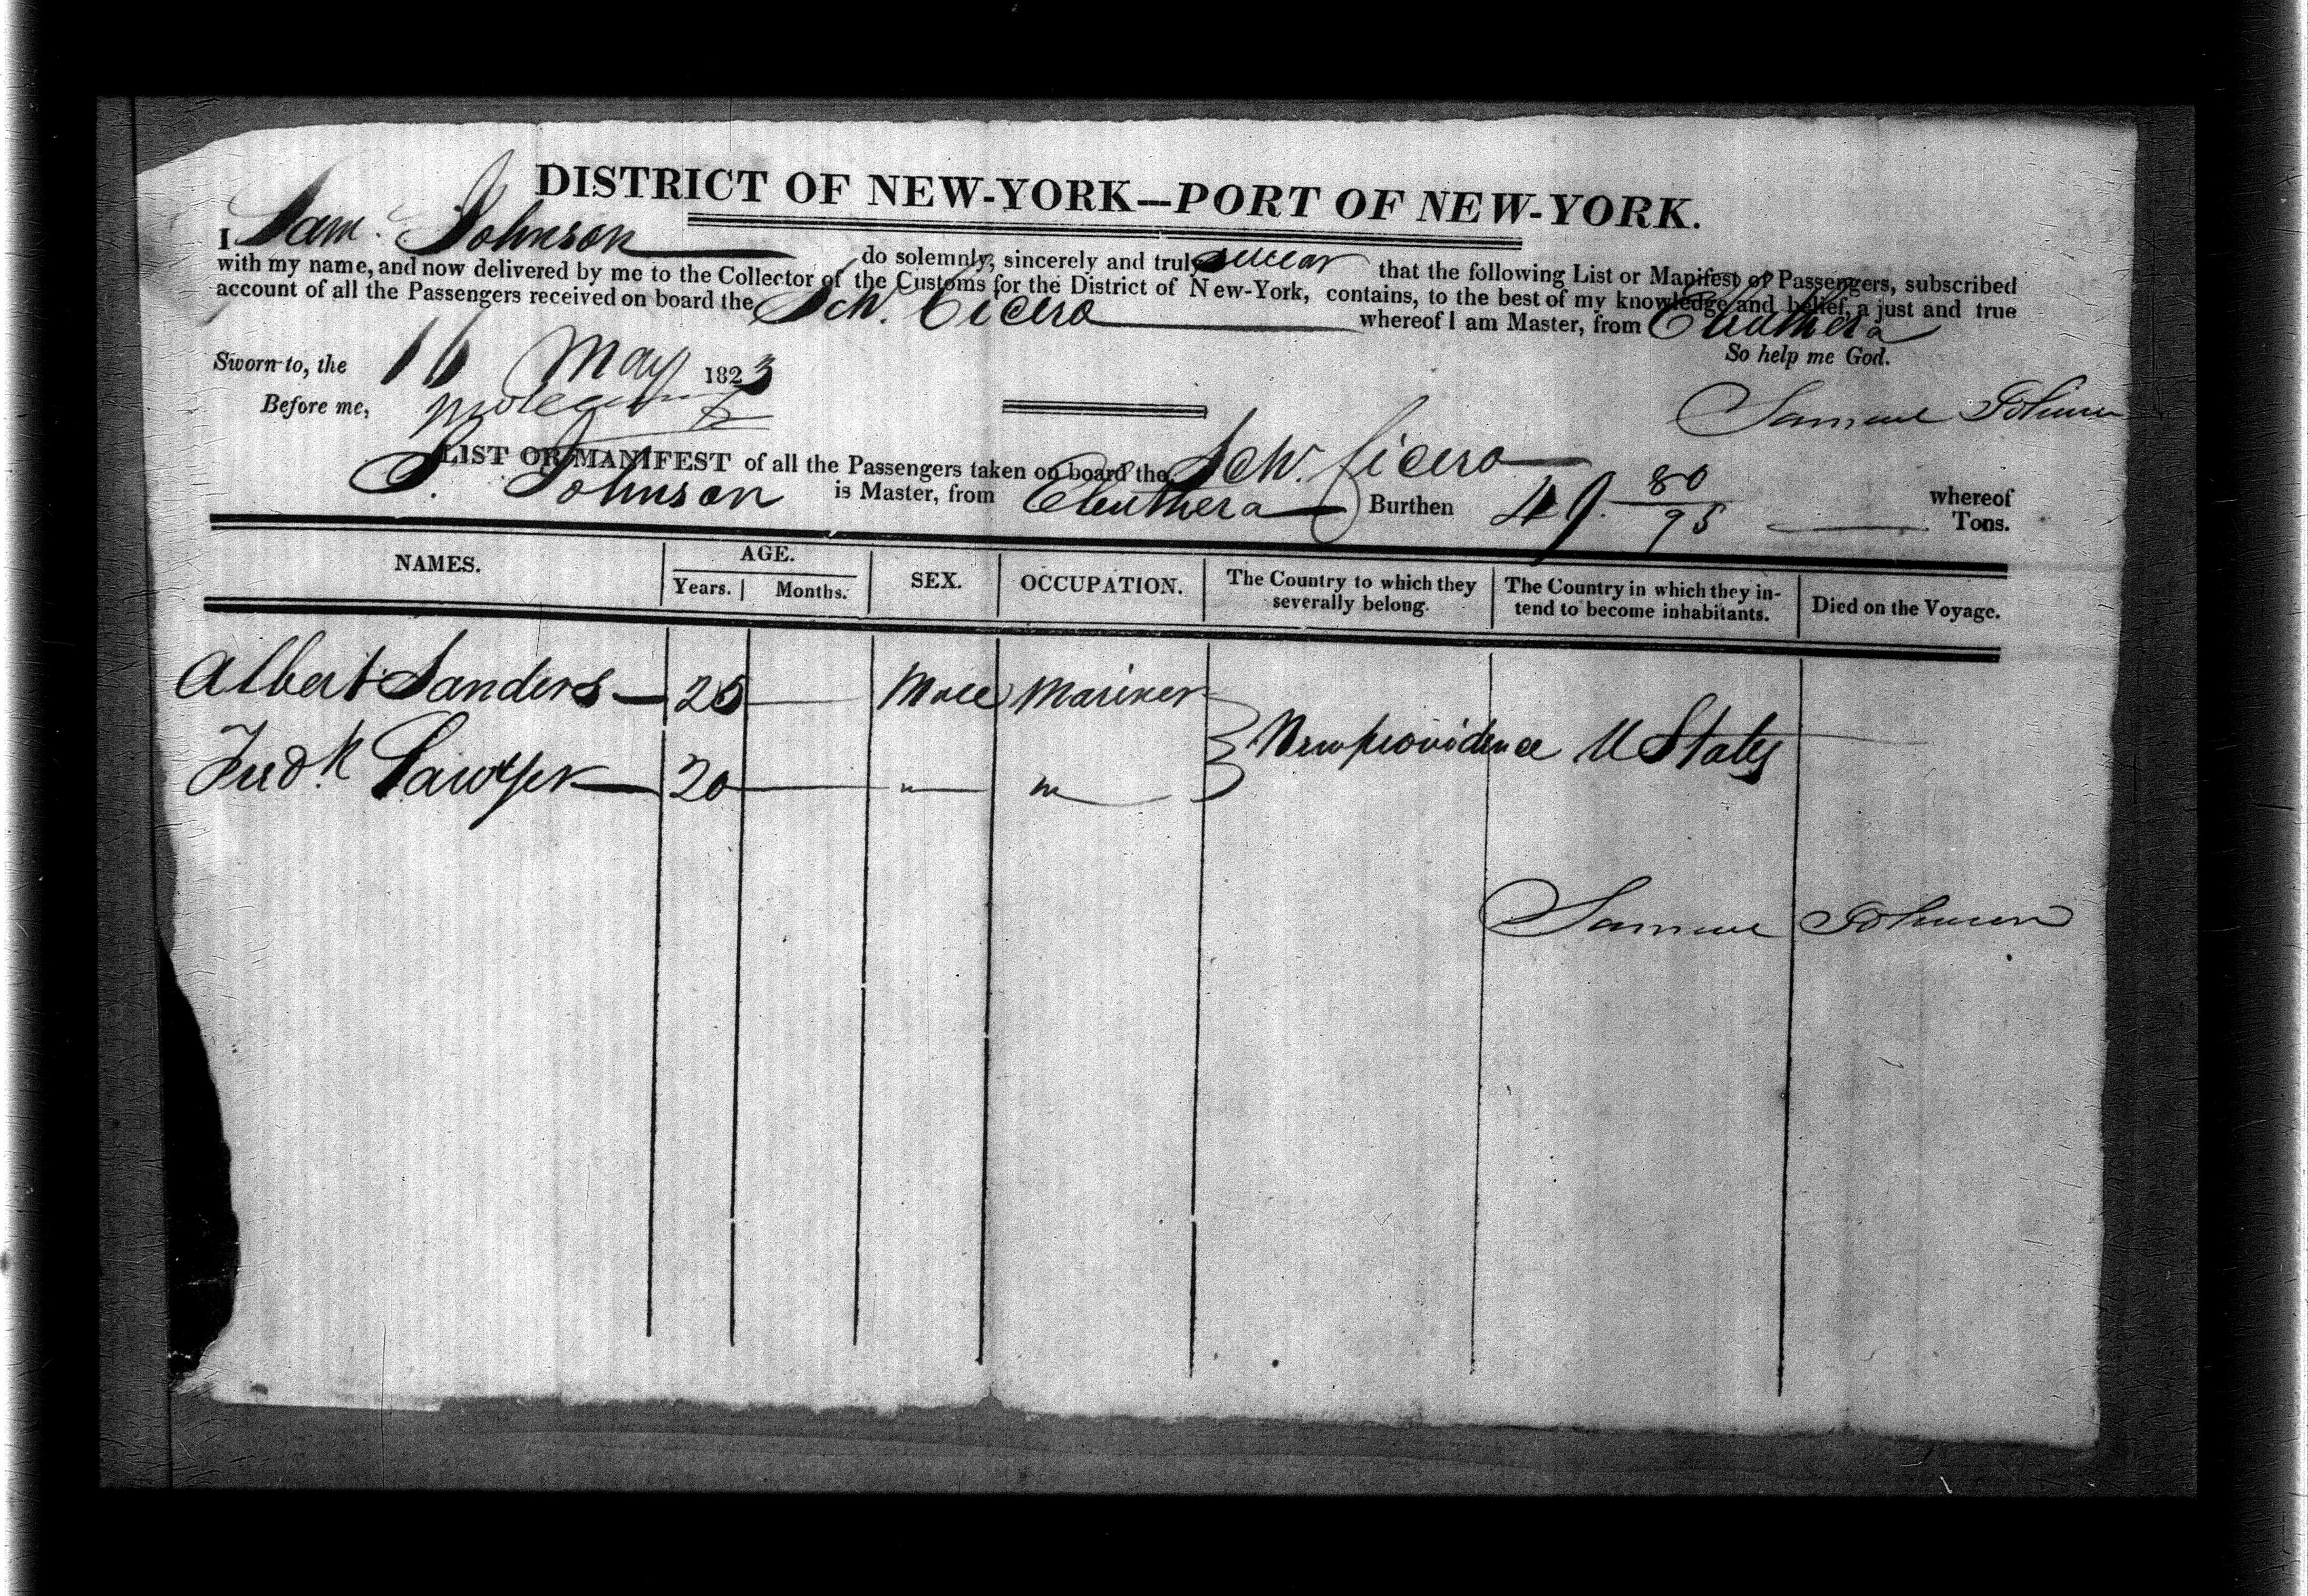 DISTRICT OF NEW-YORK—PORT OF NEW-YORK.
I Sam. Johnson do solemnly, sincerely and truly swear that the following List or Manifest of Passengers, subscribed
with my name, and now delivered by me to the Collector of the Customs for the District of New-York, contains, to the best of my knowledge and belief, a just and true
account of all the Passengers received on board the Sch. Cicero whereof I am Master, from Eleuthera
So help me God.
Sworn to, the 16 May 1823
Before me,
Samuel Johnson
LIST OR MANIFEST of all the Passengers taken on board the Sch. Cicero whereof
S. Johnson is Master, from Eleuthera Burthen 49 80/95 Tons.
NAMES. AGE. SEX. OCCUPATION. The Country to which they severally belong. The Country in which they intend to become inhabitants. Died on the Voyage.
Years. Months.
Albert Sanders — 25 — Male Mariner
New providence U States
Fred.k Sawyer — 20 — " "
Samuel Johnson